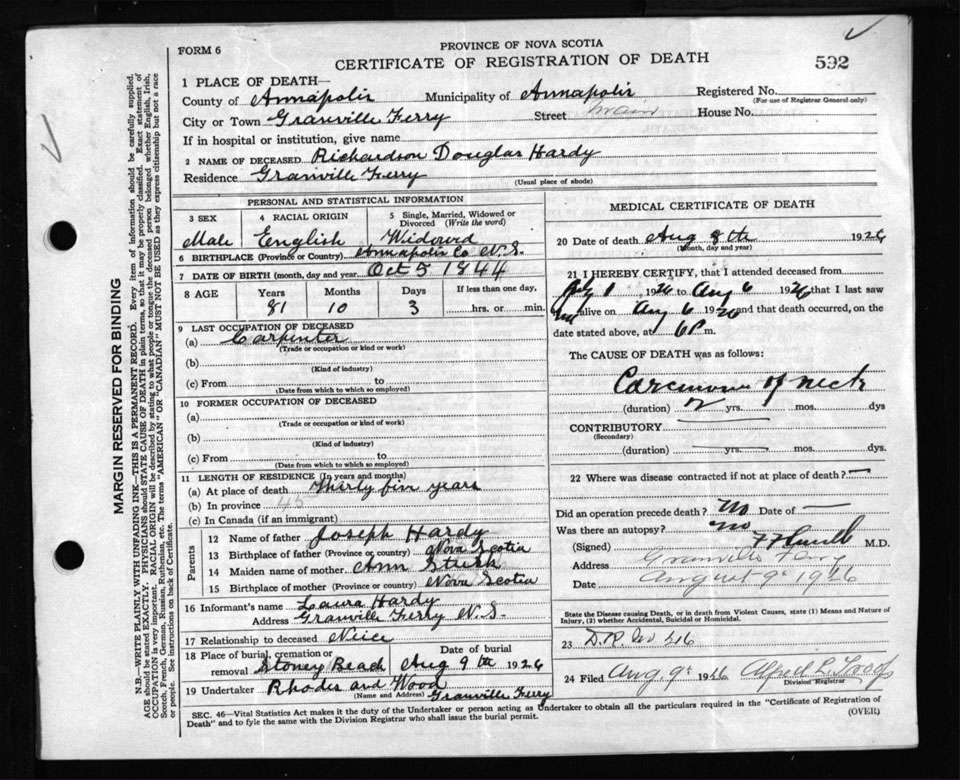 FORM 6
PROVINCE OF NOVA SCOTIA
CERTIFICATE OF REGISTRATION OF DEATH
592
1 PLACE OF DEATH—
County of Annapolis Municipality of Annapolis Registered No.
(For use of Registrar General only)
City or Town Granville Ferry Street Main House No.
If in hospital or institution, give name
2 NAME OF DECEASED Richardson Douglas Hardy
Residence Granville Ferry
(Usual place of abode)
PERSONAL AND STATISTICAL INFORMATION
3 SEX 4 RACIAL ORIGIN 5 Single, Married, Widowed or Divorced (Write the word)
Male English Widowed
6 BIRTHPLACE (Province or Country) Annapolis Co N.S.
7 DATE OF BIRTH (month, day and year) Oct 5 1844
8 AGE Years Months Days If less than one day,
81 10 3 hrs. or min.
9 LAST OCCUPATION OF DECEASED
(a) Carpenter
(Trade or occupation or kind or work)
(b)
(Kind of industry)
(c) From to
(Date from which to which so employed)
10 FORMER OCCUPATION OF DECEASED
(a)
(Trade or occupation or kind or work)
(b)
(Kind of industry)
(c) From to
(Date from which to which so employed)
11 LENGTH OF RESIDENCE (In years and months)
(a) At place of death Thirty five years
(b) In province
(c) In Canada (if an immigrant)
Parents
12 Name of father Joseph Hardy
13 Birthplace of father (Province or country) Nova Scotia
14 Maiden name of mother Ann
15 Birthplace of mother (Province or Country) Nova Scotia
16 Informant's name Laura Hardy
Address Granville Ferry N.S.
17 Relationship to deceased Neice
18 Place of burial, cremation or removal Stoney Beach Date of burial Aug 9th 1926
19 Undertaker Rhodes and Wood
(Name and Address) Granville Ferry
MEDICAL CERTIFICATE OF DEATH
20 Date of death Aug 8th 1926
(Month, day and year)
21 I HEREBY CERTIFY, that I attended deceased from
1926 to Aug 6 1926 that I last saw
alive on Aug 6 1926 and that death occurred, on the
date stated above, at 6 P m.
The CAUSE OF DEATH was as follows:
Carcinoma of neck
(duration) 2 yrs. mos. dys
CONTRIBUTORY
(Secondary)
(duration) yrs. mos. dys
22 Where was disease contracted if not at place of death? —
Did an operation precede death? no Date of —
Was there an autopsy? no
(Signed) M.D.
Address Granville Ferry
Date August 9th 1926
State the Disease causing Death, or in death from Violent Causes, state (1) Means and Nature of Injury, (2) whether Accidental, Suicidal or Homicidal.
23
24 Filed Aug. 9th 1926 Alfred
Division Registrar
SEC. 46—Vital Statistics Act makes it the duty of the Undertaker or person acting as Undertaker to obtain all the particulars required in the "Certificate of Registration of
Death" and to fyle the same with the Division Registrar who shall issue the burial permit.
(OVER)
MARGIN RESERVED FOR BINDING
N.B.—WRITE PLAINLY WITH UNFADING INK—THIS IS A PERMANENT RECORD. Every item of information should be carefully supplied.
AGE should be stated EXACTLY. PHYSICIANS should STATE CAUSE OF DEATH in plain terms, so that it may be properly classified. Exact statement of
OCCUPATION is very important. RACIAL ORIGIN will be described by stating to what people or tongue the deceased person belonged whether English, Irish,
Scotch, French, German, Russian, Ruthenian, etc. The terms "AMERICAN" OR "CANADIAN" MUST NOT BE USED as they express citizenship but not a race
or people. See instructions on back of Certificate.